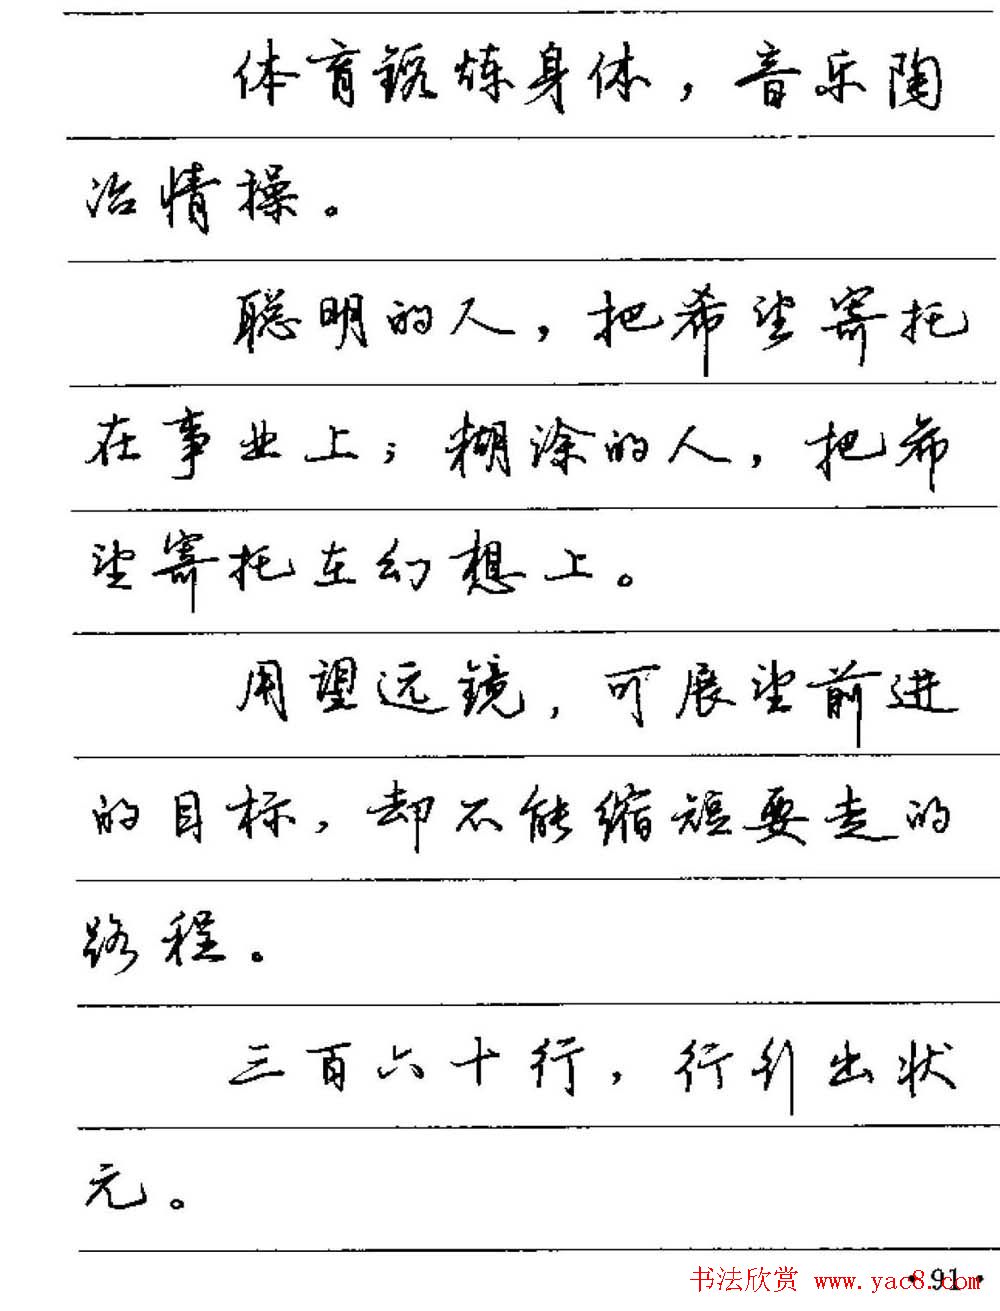 体育锻炼身体，音乐陶
冶情操。
聪明的人，把希望寄托
在事业上；糊涂的人，把希
望寄托在幻想上。
用望远镜，可展望前进
的目标，却不能缩短要走的
路程。
三百六十行，行行出状
元。
·91·
书法欣赏 www.yac8.com